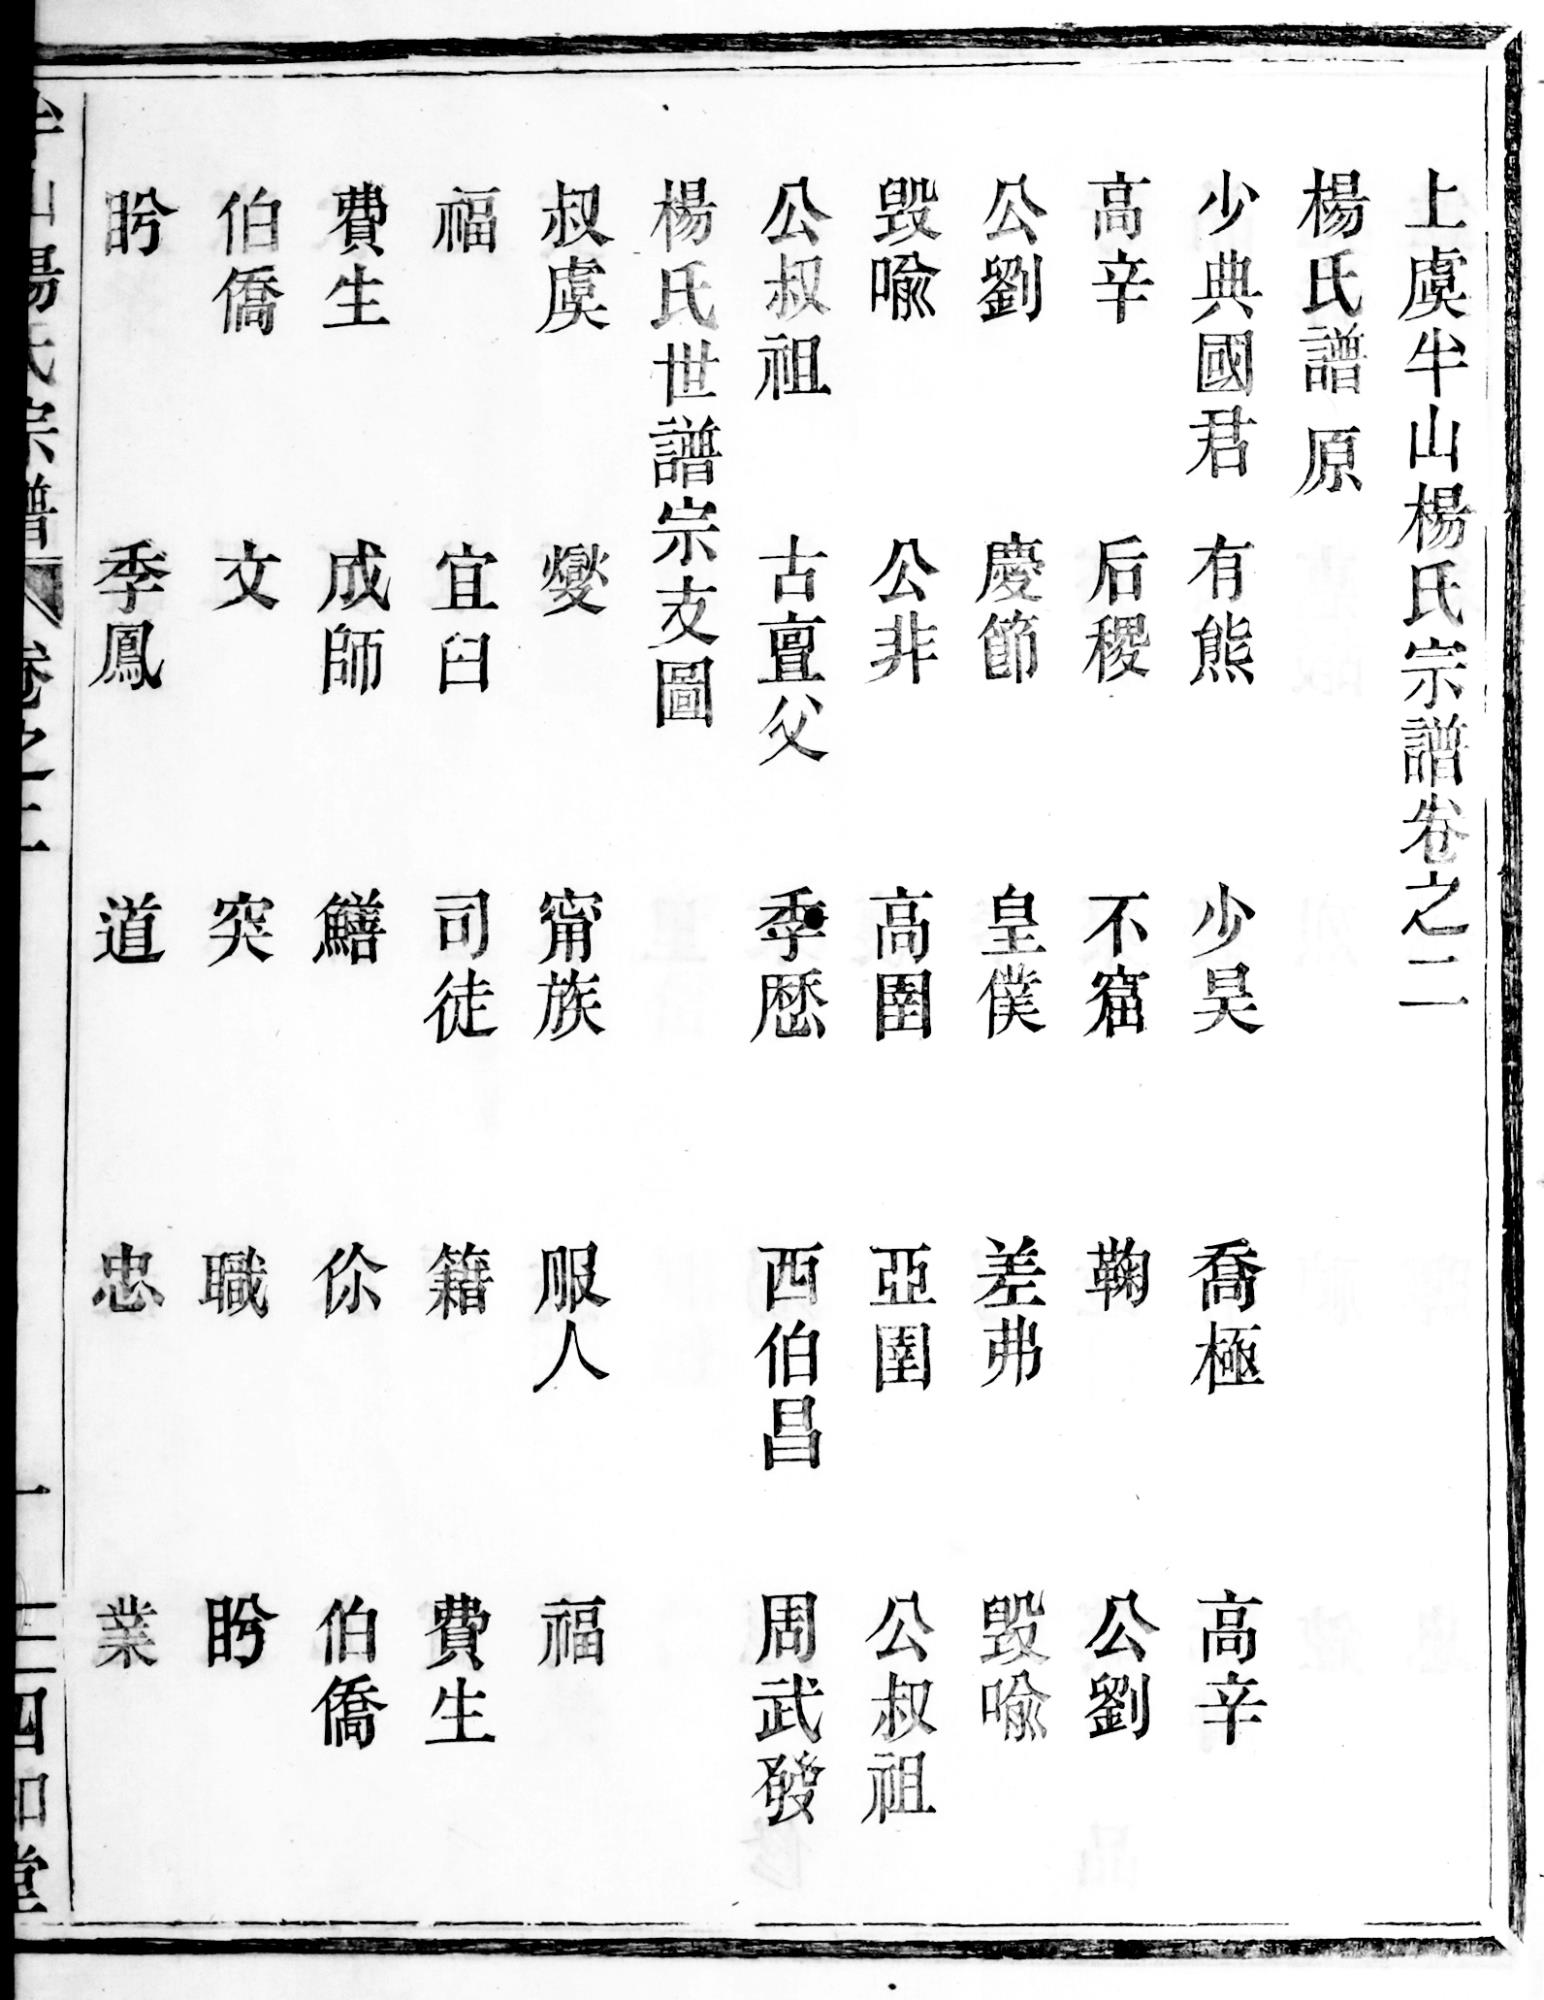 上虞半山楊氏宗譜卷之二
楊氏譜原
少典國君 有熊 少昊 喬極 高辛
高辛 后稷 不窟 鞠 公劉
公劉 慶節 皇僕 差弗 毀喻
毀喻 公非 高圉 亞圉 公叔祖
公叔祖 古亶父 季歷 西伯昌 周武發
楊氏世譜宗支圖
叔虞 燮 甯族 服人 福
福 宜臼 司徒 籍 費生
費生 成師 鱔 伱 伯僑
伯僑 文 突 職 盻
盻 季鳳 道 忠 業
半山楊氏宗譜 卷之二 一 四知堂